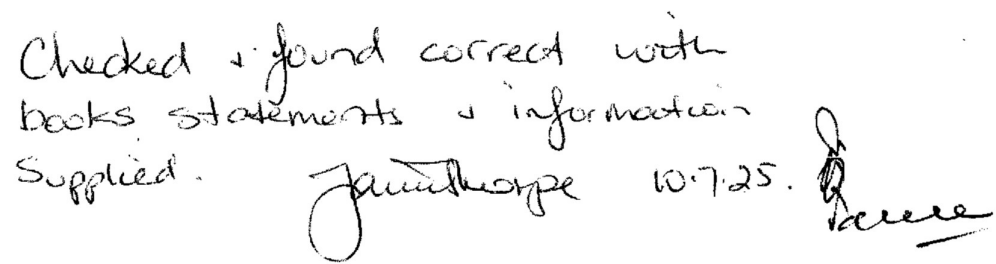 Checked & found correct with
books statements & information
Supplied. 10.7.25.